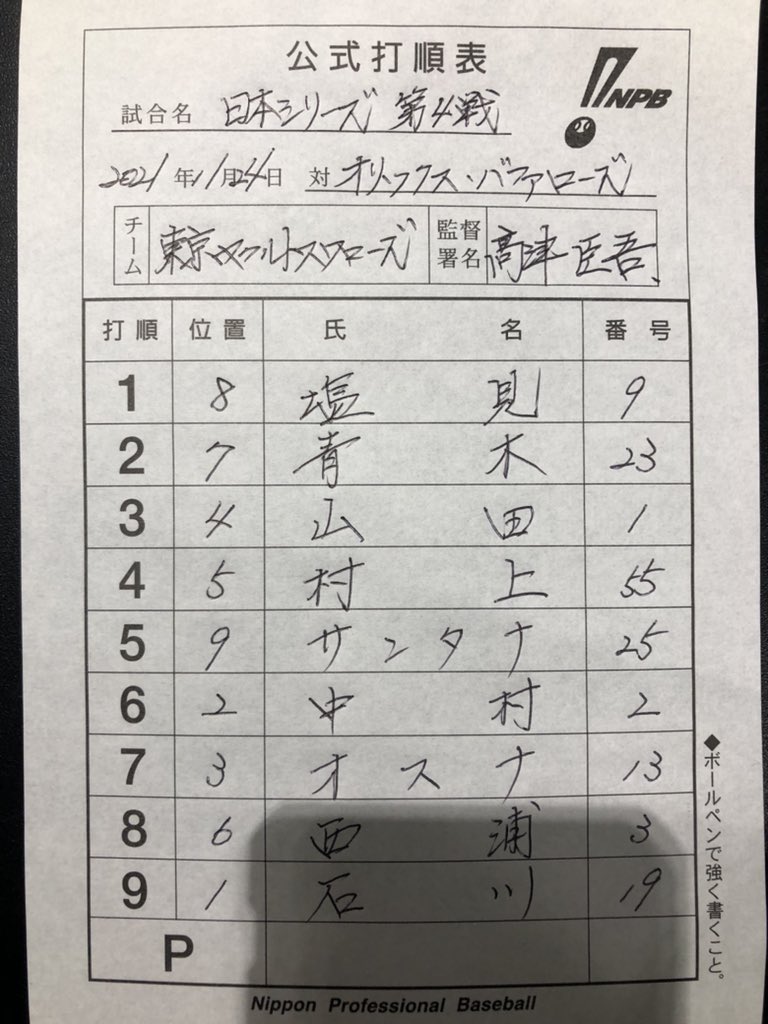 公式打順表
NPB
試合名 日本シリーズ 第4戦
2021年11月24日 対 オリックス・バファローズ
チーム 東京ヤクルトスワローズ 監督署名 高津臣吾
打順 位置 氏名 番号
1 8 塩見 9
2 7 青木 23
3 4 山田 1
4 5 村上 55
5 9 サンタナ 25
6 2 中村 2
7 3 オスナ 13
8 6 西浦 3
9 1 石川 19
P
◆ボールペンで強く書くこと。
Nippon Professional Baseball